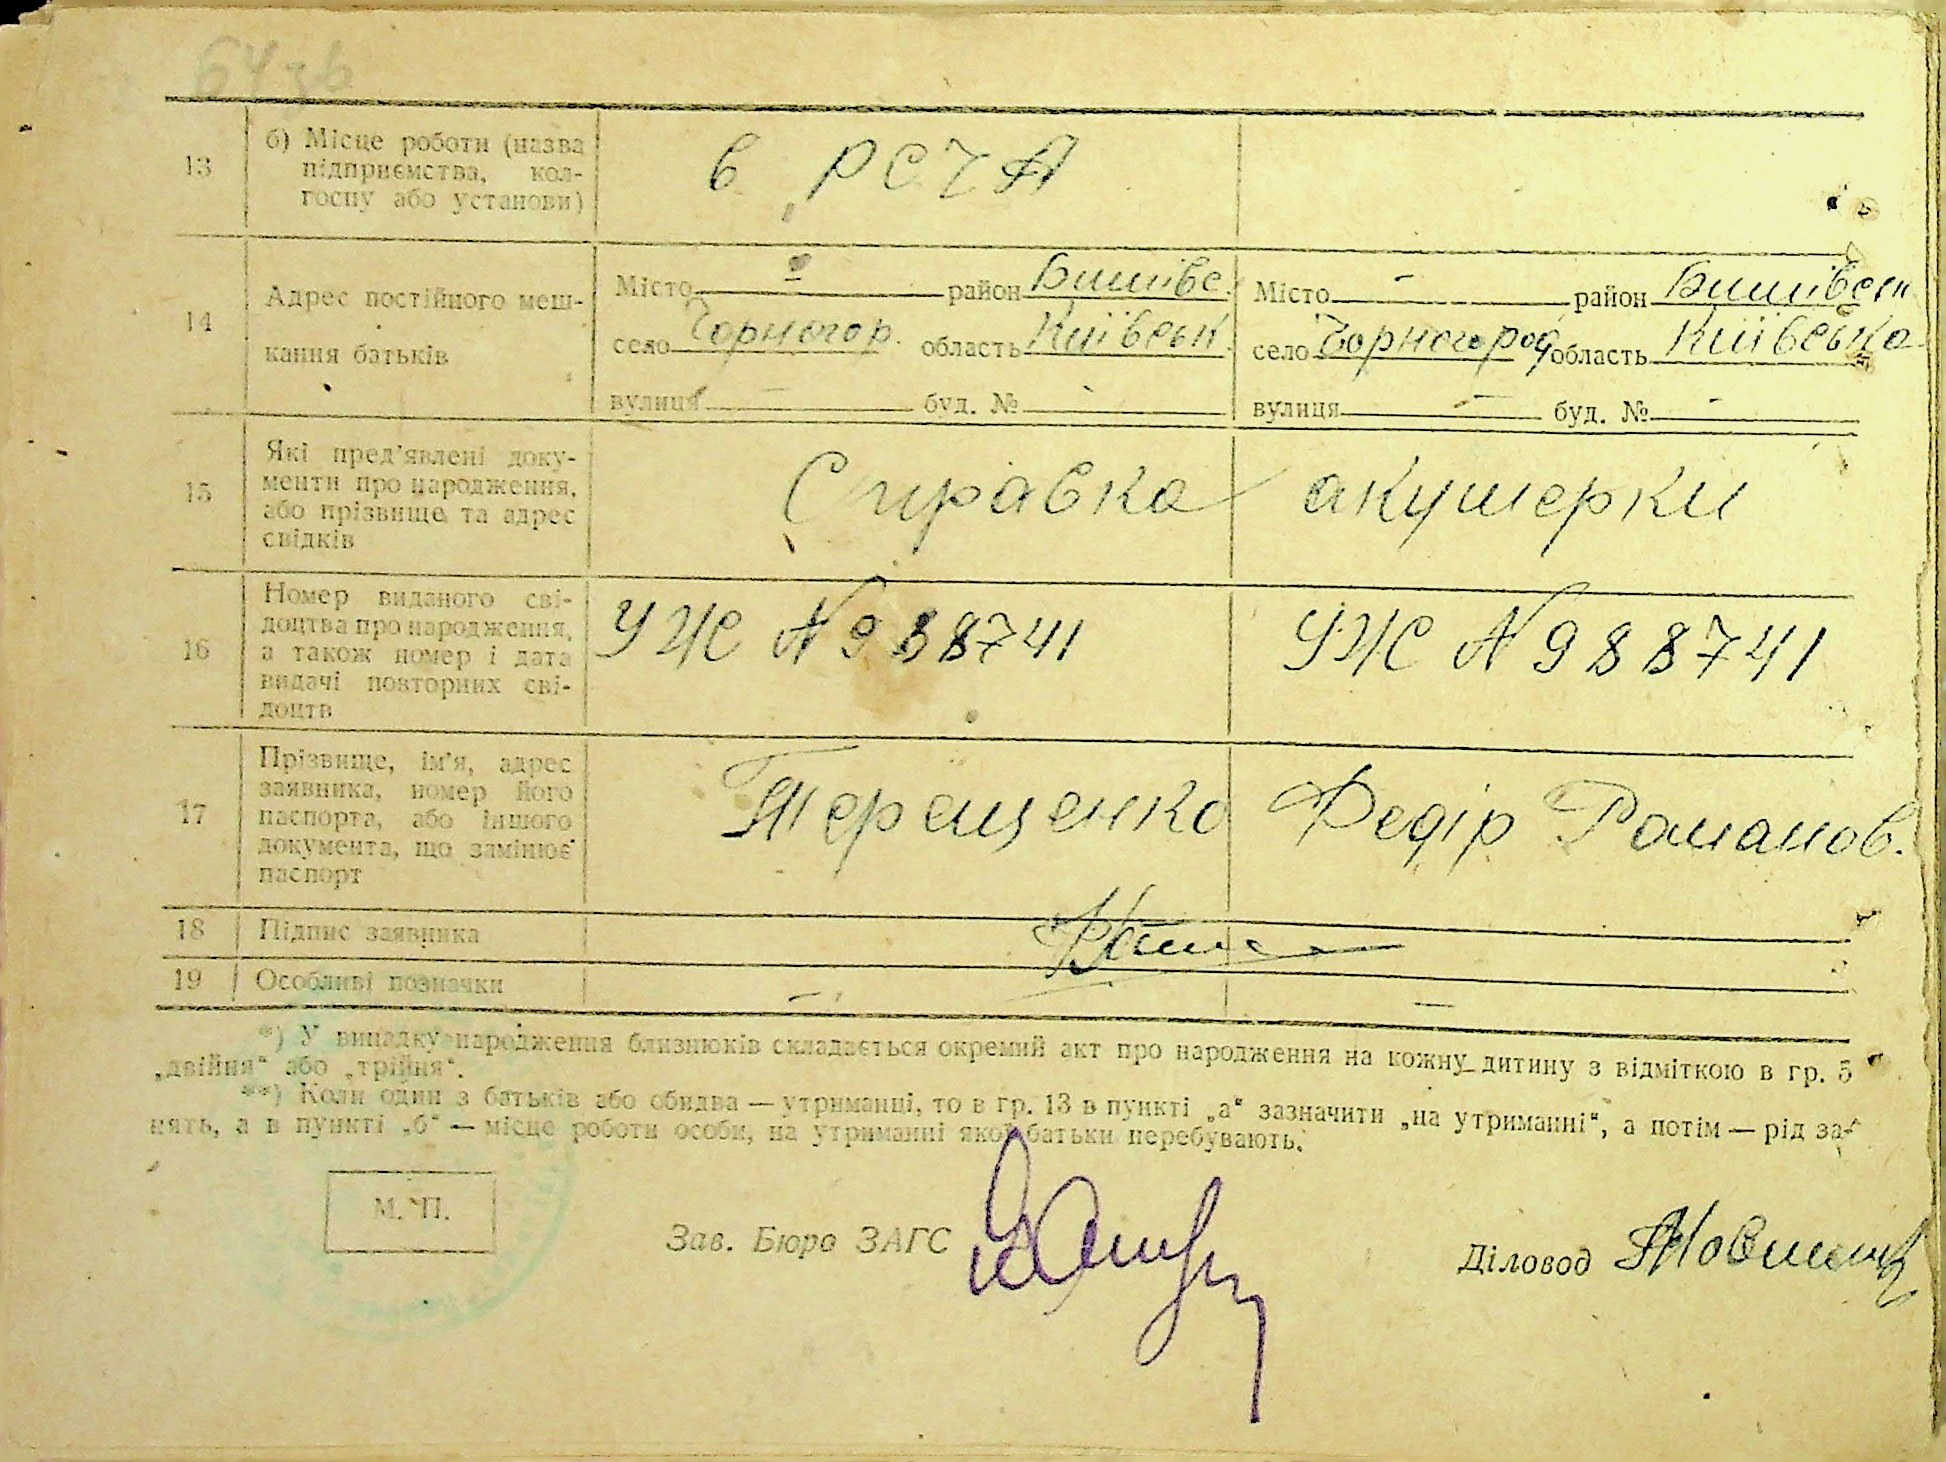 64 зв
13
б) Місце роботи (назва
підприємства, кол-
госпу або установи)
в РСЧА
14
Адрес постійного меш-
кання батьків
Місто — район Бишівс.
село Чорногор. область Київськ.
вулиця — буд. №
Місто — район Бишівськ
село Чорногород область Київська
вулиця — буд. № -
15
Які пред'явлені доку-
менти про народження,
або прізвище та адрес
свідків
Справка акушерки
16
Номер виданого сві-
доцтва про народження,
а також номер і дата
видачі повторних сві-
доцтв
УЖ № 988741
УЖ № 988741
17
Прізвище, ім'я, адрес
заявника, номер його
паспорта, або іншого
документа, що замінює
паспорт
Терещенко Федір Романов.
18
Підпис заявника
19
Особливі позначки
—
—
*) У випадку народження близнюків складається окремий акт про народження на кожну дитину з відміткою в гр. 5
„двійня“ або „трійня“.
**) Коли один з батьків або обидва — утриманці, то в гр. 13 в пункті „а“ зазначити „на утриманні“, а потім — рід за-
нять, а в пункті „б“ — місце роботи особи, на утриманні якої батьки перебувають.
М. П.
Зав. Бюро ЗАГС
Діловод